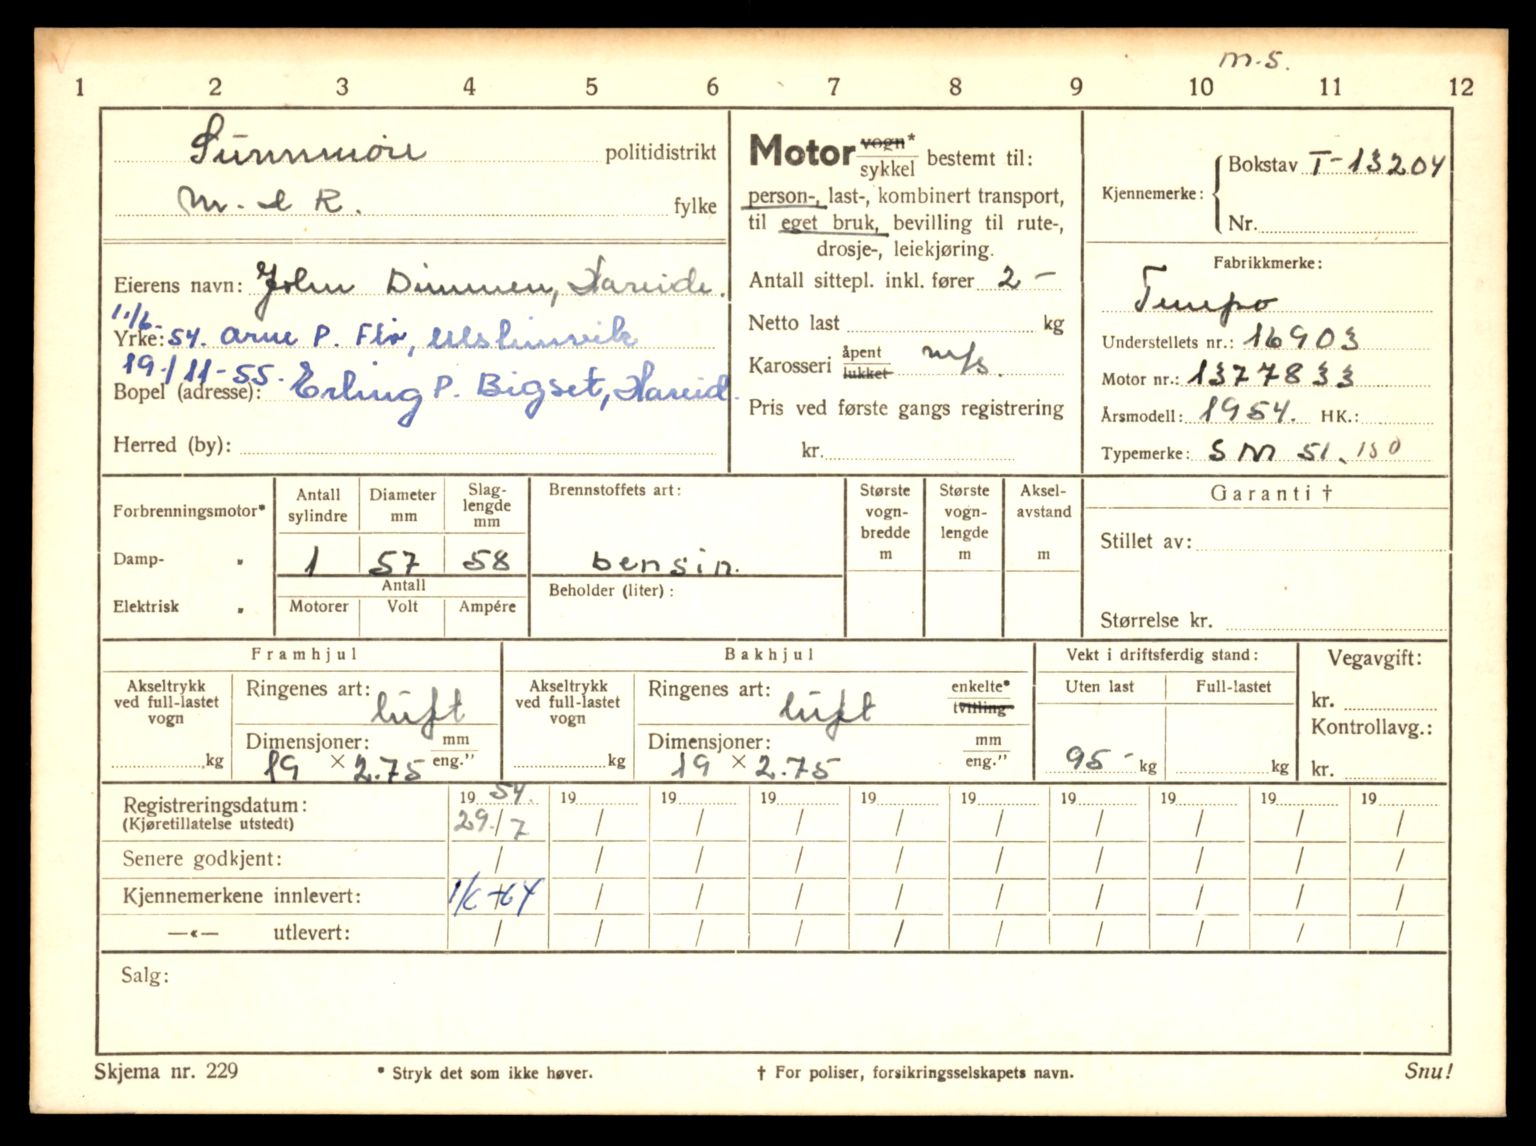 m.s.
1 2 3 4 5 6 7 8 9 10 11 12
Sunnmøre politidistrikt
M. & R. fylke
Eierens navn: John Dimmen, Hareide.
11/6- Yrke: 54. Arne P. Flø, Ulsteinvik
19/11-55. Bopel (adresse): Erling P. Bigset, Hareid.
Herred (by):
Motor vogn* sykkel bestemt til:
person-, last-, kombinert transport,
til eget bruk, bevilling til rute-,
drosje-, leiekjøring.
Antall sittepl. inkl. fører 2 -
Netto last kg
Karosseri åpent lukket m/s.
Pris ved første gangs registrering
kr.
Kjennemerke: Bokstav T-13204
Nr.
Fabrikkmerke:
Tempo
Understellets nr.: 16903
Motor nr.: 1377833
Årsmodell: 1954. HK.:
Typemerke: SM 51. 150
Forbrenningsmotor*
Damp- „
Elektrisk „
Antall sylindre Diameter mm Slag-lengde mm
1 57 58
Antall
Motorer Volt Ampére
Brennstoffets art:
bensin.
Beholder (liter):
Største vogn-bredde m
Største vogn-lengde m
Aksel-avstand m
Garanti †
Stillet av:
Størrelse kr.
Framhjul
Akseltrykk ved full-lastet vogn kg
Ringenes art: luft
Dimensjoner: mm
19 × 2.75 eng."
Bakhjul
Akseltrykk ved full-lastet vogn kg
Ringenes art: luft enkelte* tvilling
Dimensjoner: mm
19 × 2.75 eng."
Vekt i driftsferdig stand:
Uten last Full-lastet
95 - kg kg
Vegavgift:
kr.
Kontrollavg.:
kr.
Registreringsdatum: 19 54. 19 19 19 19 19 19 19 19 19
(Kjøretillatelse utstedt) 29./7 / / / / / / / / /
Senere godkjent: / / / / / / / / / /
Kjennemerkene innlevert: 1/6-64 / / / / / / / / /
—«— utlevert: / / / / / / / / / /
Salg:
Skjema nr. 229 * Stryk det som ikke høver. † For poliser, forsikringsselskapets navn. Snu!